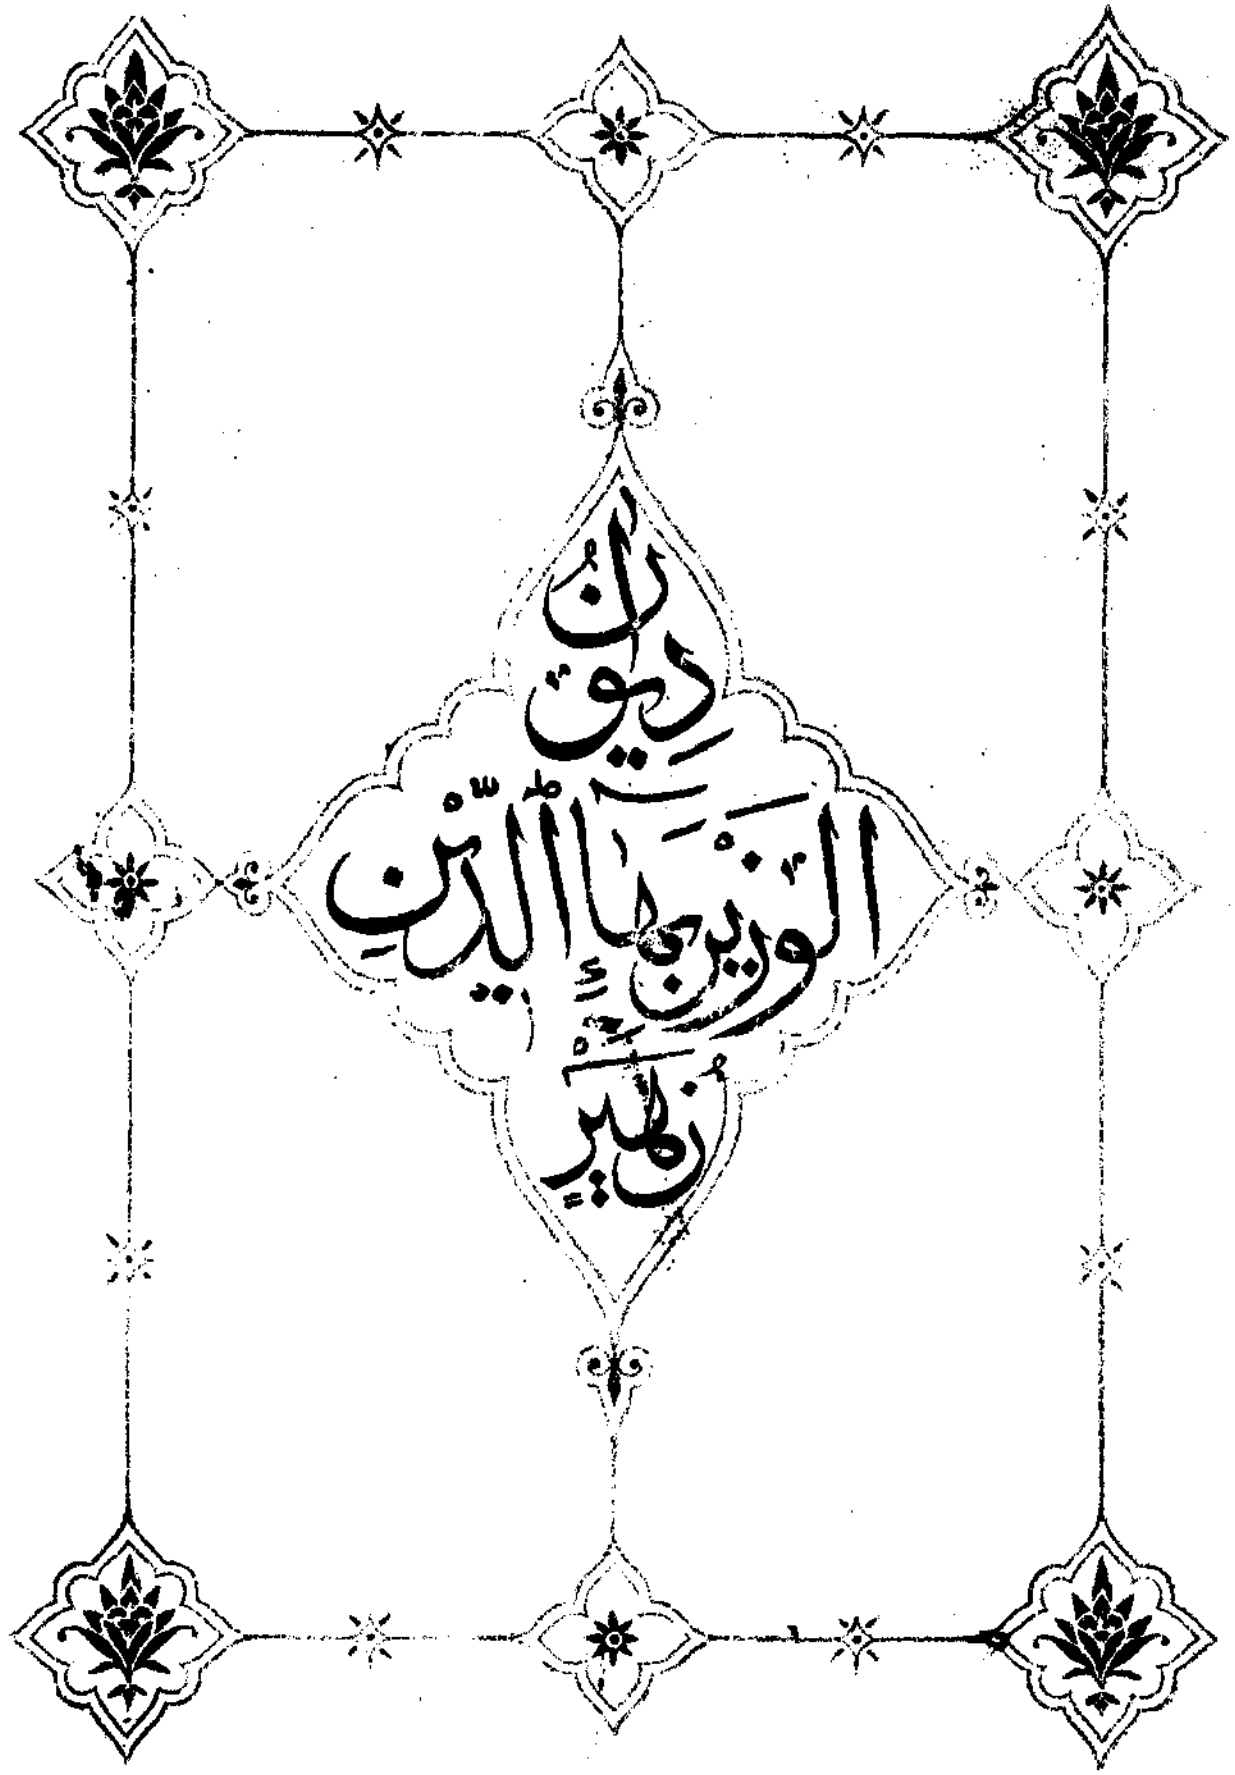 دِيوَانُ
الْوَزِيرِ بَهَاءِ الدِّيْنِ
زُهَيْرٍ